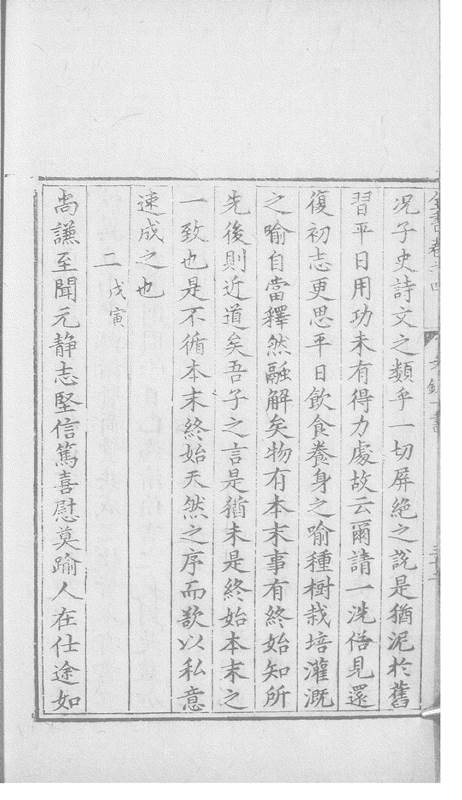 全書卷之四
況子史詩文之類乎一切屏絕之說是猶泥於舊
習平日用功未有得力處故云爾請一洗俗見還
復初志更思平日飲食養身之喻種樹栽培灌溉
之喻自當釋然融解矣物有本末事有終始知所
先後則近道矣吾子之言是猶未是終始本末之
一致也是不循本末終始天然之序而欲以私意
速成之也
二 戊寅
尚謙至聞元靜志堅信篤喜慰莫踰人在仕途如